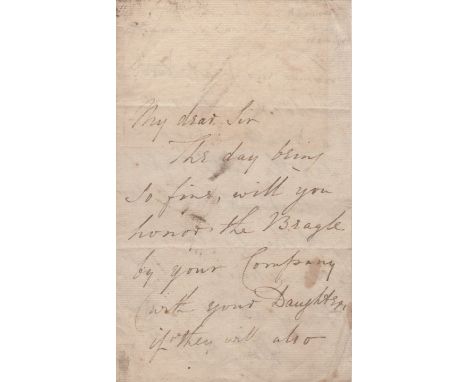 My dear Sir
The day being
so fine, will you
honor the Beagle
by your Company
(with your Daughters,
if they will also